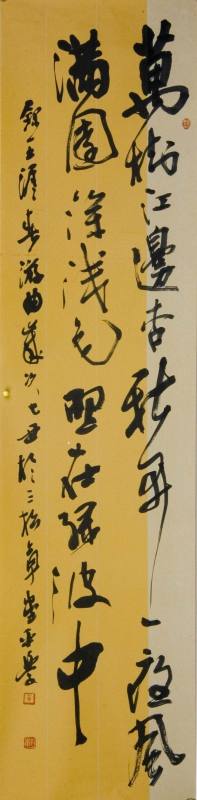 萬樹江邊杏新開一夜風
滿園深淺色照在綠波中
錄王涯春游曲歲次丑於三松草堂